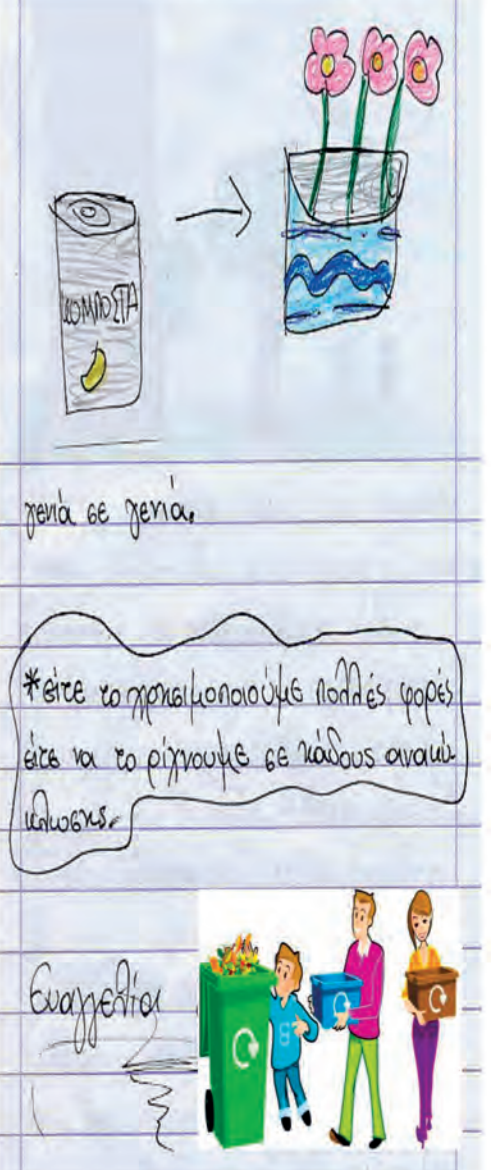 ΚΟΜΠΟΣΤΑ
γενιά σε γενιά.
*είτε το χρησιμοποιούμε πολλές φορές
είτε να το ρίχνουμε σε κάδους ανακύ-
κλωσης.
Ευαγγελία